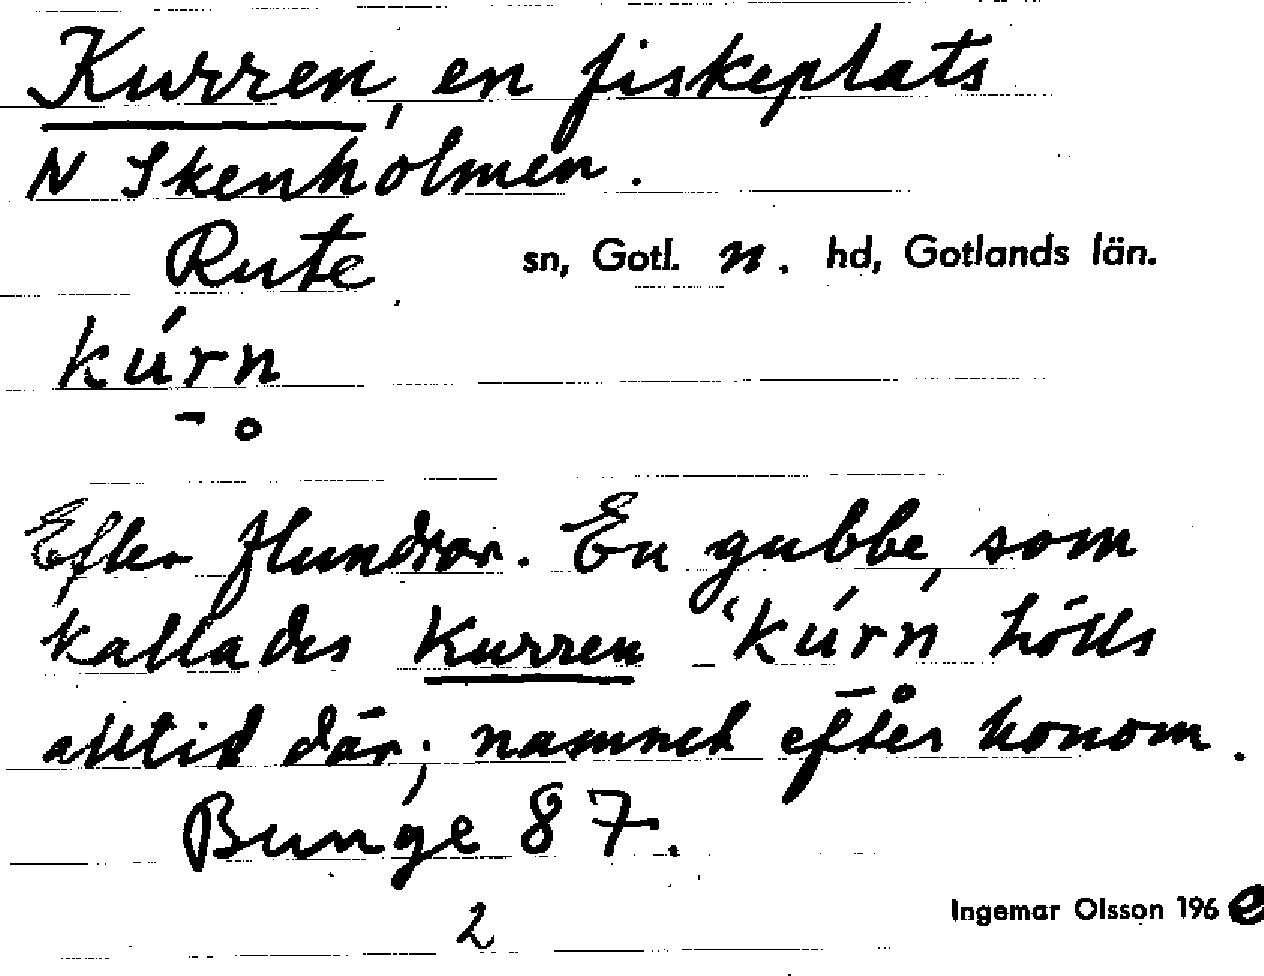 Kurren, en fiskeplats
N Skenholmen.
Rute sn, Gotl. n. hd, Gotlands län.
kúrn
Efter flundror. En gubbe, som
kallades Kurren ‘kúrń hölls
alltid där; namnet efter honom.
Bunge 87.
2
Ingemar Olsson 196